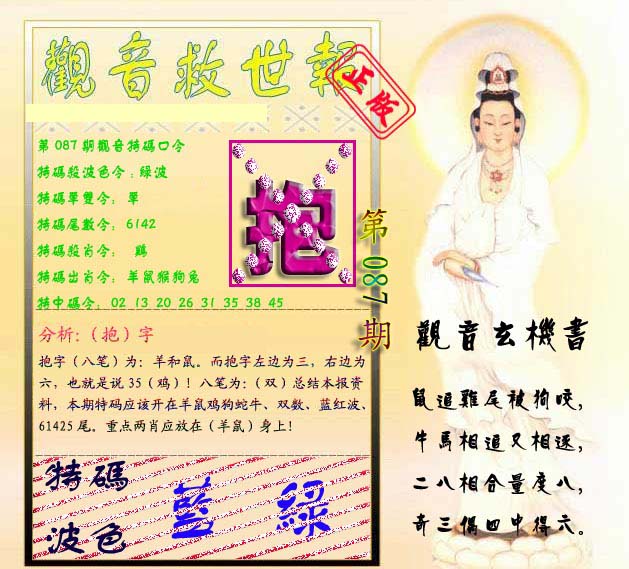 觀音救世報
正版
第087期觀音特碼口令
特碼殺波色令:綠波
特碼單雙令: 單
特碼尾數令: 6142
特碼殺肖令: 鷄
特碼出肖令: 羊鼠猴狗兔
特中碼令: 02 13 20 26 31 35 38 45
抱
第087期
分析:（抱）字
抱字（八笔）为：羊和鼠。而抱字左边为三，右边为
六，也就是说 35（鸡）！八笔为：（双）总结本报资
料，本期特码应该开在羊鼠鸡狗蛇牛、双数、蓝红波、
61425 尾。重点两肖应放在（羊鼠）身上！
特碼
波色
藍 綠
觀音玄機書
鼠追雞尾被狗咬,
牛馬相追又相逐,
二八相合量度八,
奇三偶四中得六。